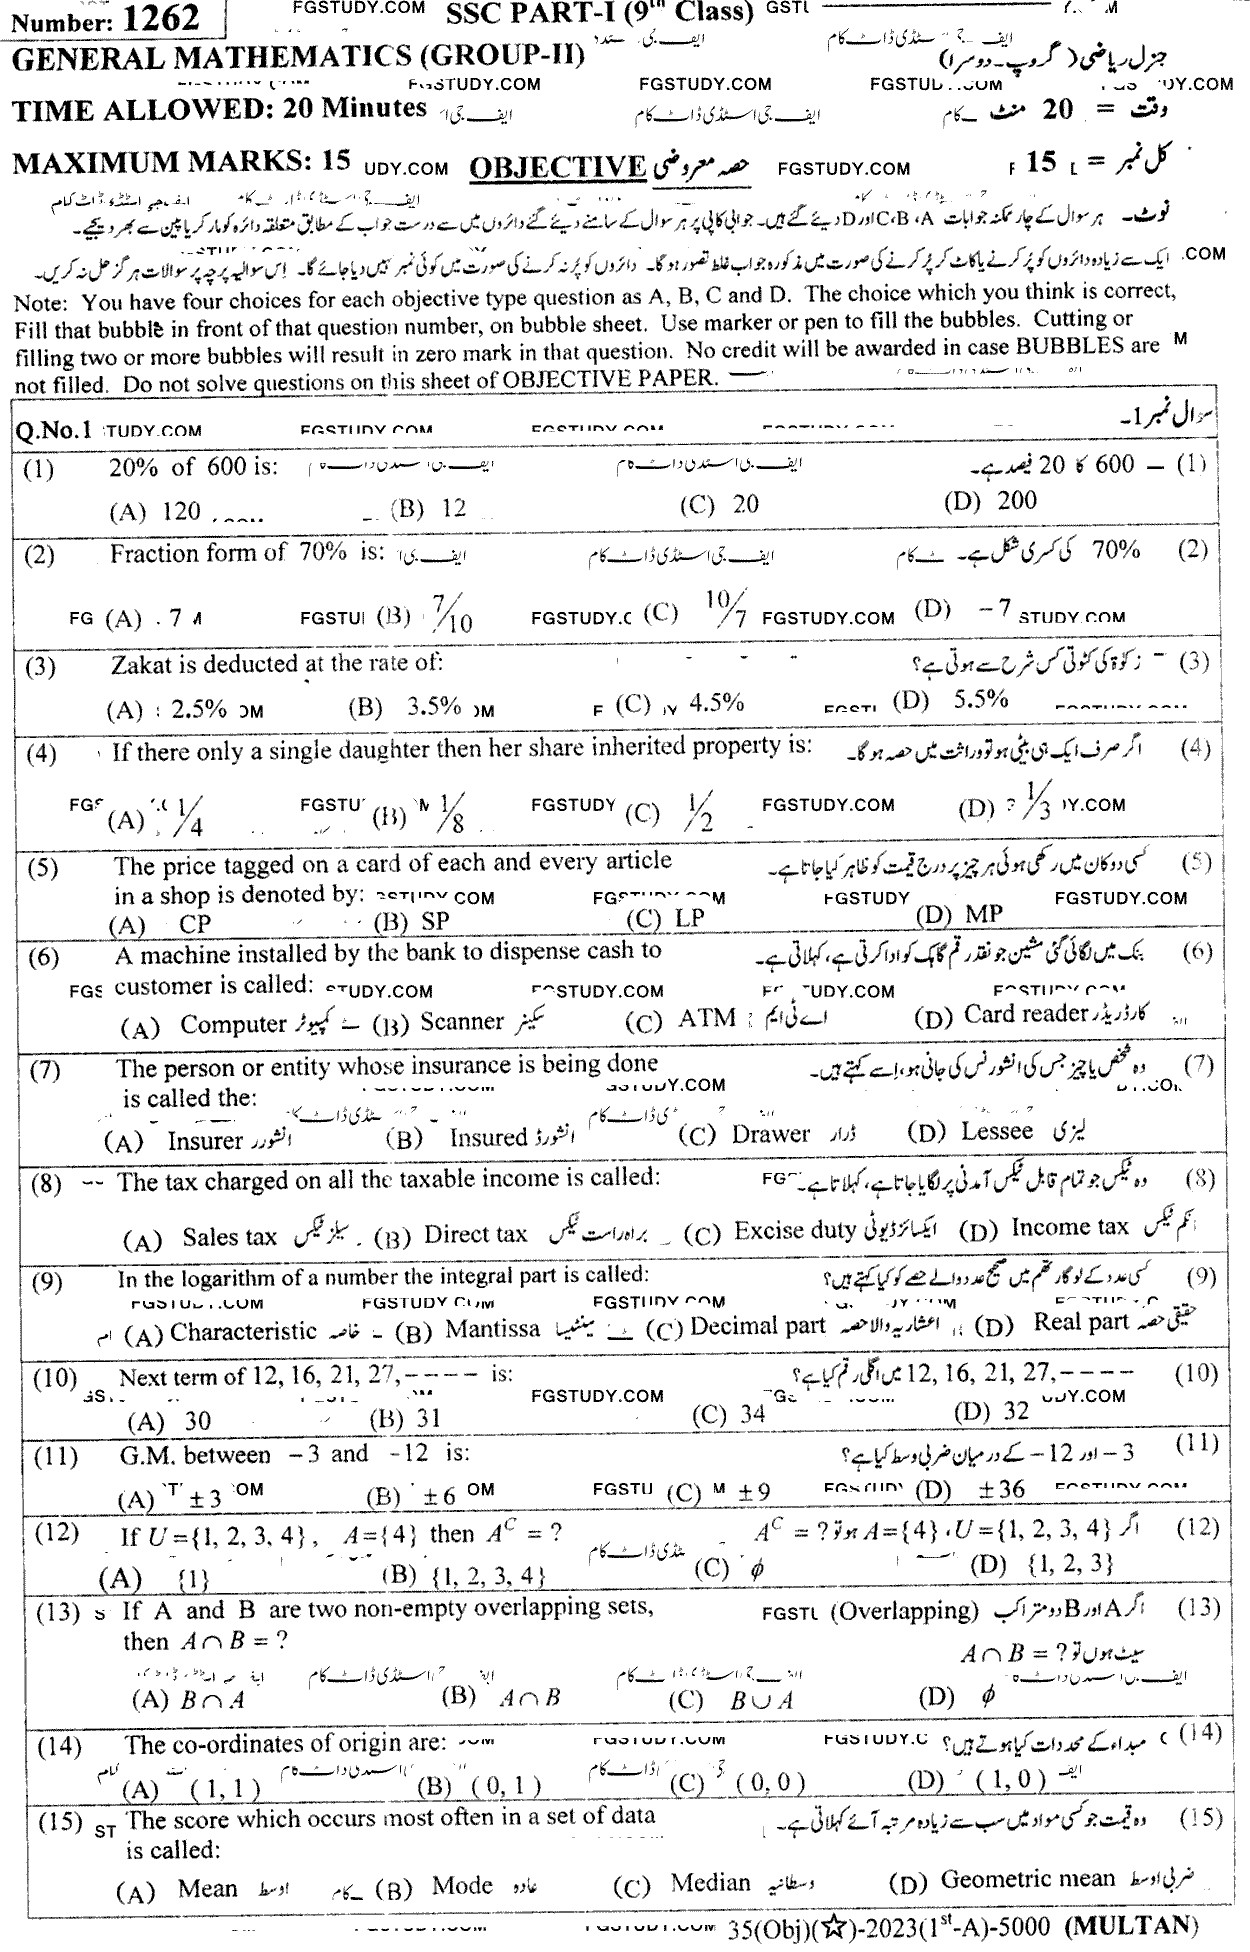 Number: 1262 FGSTUDY.COM SSC PART-I (9th Class)
GENERAL MATHEMATICS (GROUP-II) جنرل ریاضی (گروپ۔دوسرا)
FGSTUDY.COM FGSTUDY.COM
TIME ALLOWED: 20 Minutes وقت = 20 منٹ
MAXIMUM MARKS: 15 OBJECTIVE حصہ معروضی FGSTUDY.COM کل نمبر = 15
نوٹ۔ ہر سوال کے چار ممکنہ جوابات A، B، C اور D دیئے گئے ہیں۔ جوابی کاپی پر ہر سوال کے سامنے دیئے گئے دائروں میں سے درست جواب کے مطابق متعلقہ دائرہ کو مارکر یا پین سے بھر دیجیے۔
ایک سے زیادہ دائروں کو پُر کرنے یا کاٹ کر پُر کرنے کی صورت میں مذکورہ جواب غلط تصور ہو گا۔ دائروں کو پُر نہ کرنے کی صورت میں کوئی نمبر نہیں دیا جائے گا۔ اِس سوالیہ پرچہ پر سوالات ہرگز حل نہ کریں۔
Note: You have four choices for each objective type question as A, B, C and D. The choice which you think is correct,
Fill that bubble in front of that question number, on bubble sheet. Use marker or pen to fill the bubbles. Cutting or
filling two or more bubbles will result in zero mark in that question. No credit will be awarded in case BUBBLES are
not filled. Do not solve questions on this sheet of OBJECTIVE PAPER.
Q.No.1 سوال نمبر 1۔
(1) 20% of 600 is: 600 کا 20 فیصد ہے۔ (1)
(A) 120 (B) 12 (C) 20 (D) 200
(2) Fraction form of 70% is: 70% کی کسری شکل ہے۔ (2)
(A) 7 (B) 7/10 (C) 10/7 (D) −7
(3) Zakat is deducted at the rate of: زکوٰۃ کی کٹوتی کس شرح سے ہوتی ہے؟ (3)
(A) 2.5% (B) 3.5% (C) 4.5% (D) 5.5%
(4) If there only a single daughter then her share inherited property is: اگر صرف ایک ہی بیٹی ہو تو وراثت میں حصہ ہو گا۔ (4)
(A) 1/4 (B) 1/8 (C) 1/2 (D) 1/3
(5) The price tagged on a card of each and every article کسی دوکان میں رکھی ہوئی ہر چیز پر درج قیمت کو ظاہر کیا جاتا ہے۔ (5)
in a shop is denoted by:
(A) CP (B) SP (C) LP (D) MP
(6) A machine installed by the bank to dispense cash to بنک میں لگائی گئی مشین جو نقد رقم گاہک کو ادا کرتی ہے، کہلاتی ہے۔ (6)
customer is called:
(A) Computer کمپیوٹر (B) Scanner سکینر (C) ATM اے ٹی ایم (D) Card reader کارڈ ریڈر
(7) The person or entity whose insurance is being done وہ شخص یا چیز جس کی انشورنس کی جانی ہو، اسے کہتے ہیں۔ (7)
is called the:
(A) Insurer انشورر (B) Insured انشورڈ (C) Drawer ڈرار (D) Lessee لیزی
(8) The tax charged on all the taxable income is called: وہ ٹیکس جو تمام قابل ٹیکس آمدنی پر لگایا جاتا ہے، کہلاتا ہے۔ (8)
(A) Sales tax سیلز ٹیکس (B) Direct tax براہ راست ٹیکس (C) Excise duty ایکسائز ڈیوٹی (D) Income tax انکم ٹیکس
(9) In the logarithm of a number the integral part is called: کسی عدد کے لوگارتھم میں صحیح عدد والے حصے کو کیا کہتے ہیں؟ (9)
(A) Characteristic خاصہ (B) Mantissa مینٹیسا (C) Decimal part اعشاریہ والا حصہ (D) Real part حقیقی حصہ
(10) Next term of 12, 16, 21, 27, − − − − is: 12, 16, 21, 27, − − − − میں اگلی رقم کیا ہے؟ (10)
(A) 30 (B) 31 (C) 34 (D) 32
(11) G.M. between −3 and -12 is: −3 اور −12 کے درمیان ضربی وسط کیا ہے؟ (11)
(A) ±3 (B) ±6 (C) ±9 (D) ±36
(12) If U={1, 2, 3, 4}, A={4} then A^C = ? اگر U={1, 2, 3, 4}، A={4} ہو تو A^C = ? (12)
(A) {1} (B) {1, 2, 3, 4} (C) ϕ (D) {1, 2, 3}
(13) If A and B are two non-empty overlapping sets, اگر A اور B دو متراکب (Overlapping) (13)
then A∩B = ? سیٹ ہوں تو A∩B = ?
(A) B∩A (B) A∩B (C) B∪A (D) ϕ
(14) The co-ordinates of origin are: مبداء کے محددات کیا ہوتے ہیں؟ (14)
(A) (1, 1) (B) (0, 1) (C) (0, 0) (D) (1, 0)
(15) The score which occurs most often in a set of data وہ قیمت جو کسی مواد میں سب سے زیادہ مرتبہ آئے کہلاتی ہے۔ (15)
is called:
(A) Mean اوسط (B) Mode عادہ (C) Median وسطانیہ (D) Geometric mean ضربی اوسط
35(Obj)(☆)-2023(1st-A)-5000 (MULTAN)